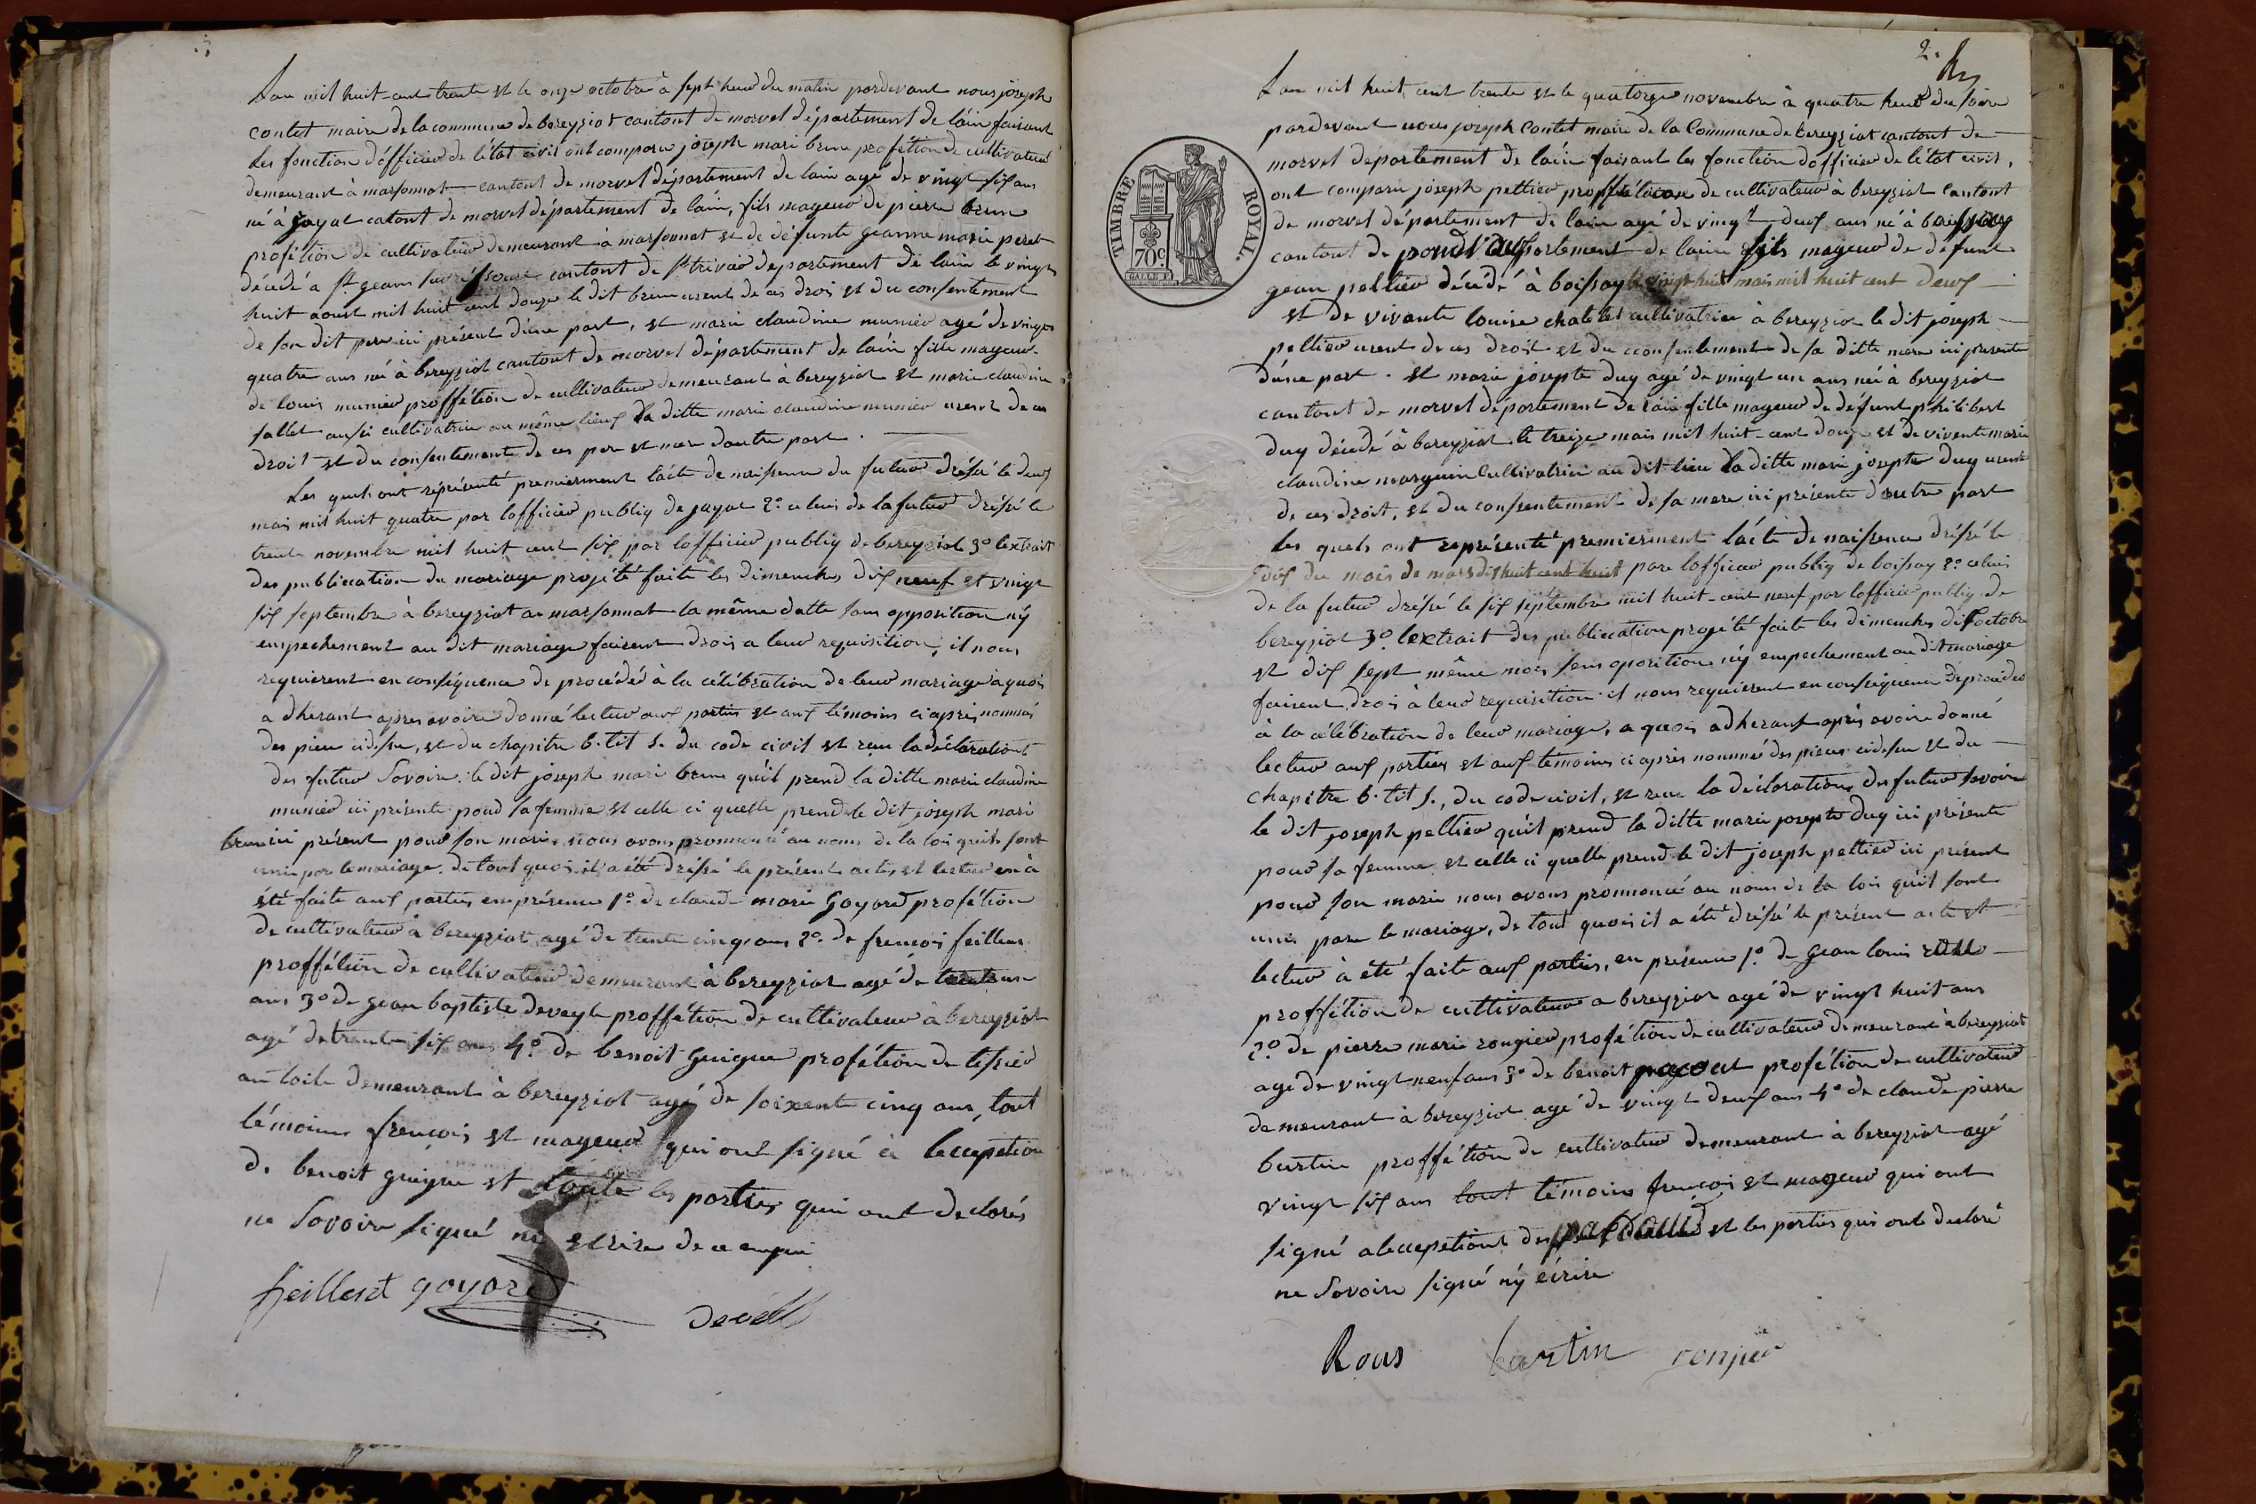 Lan mil huit-cent trente et le onze octobre à sept heur du matin pardevant nous joseph
contet maire de la commune de bereyziat cantont de morvel département de láin faisant
Les fonction dófficier de létat civil ont comparu joseph mari brun profétion de cultivateur
demeurant à marsonnat cantont de morvel département de lain agé de vingt six ans
né à jayat catont de morvel département de láin, fils mayeur de pierre brun
profétion de cultivateur demeurant à marsonnat et de défunte jeanne marie peret
décédé à st jean sur cantont de st trivié département de lain le vingt
huit aoust mil huit cent douze le dit brun usent de ces drois et du consentement
de son dit pere ici présent dúne part, et marie claudine munier agé de vingt
quatre ans né à bereyziat cantont de morvel département de lain fille mayeur
de louis munier proffétion de cultivateur demeurant à bereyziat et marie claudine
fallet ausi cultivatrice au même lieux la ditte marie claudine munier usent de ces
droit et du consentement de ces per et mer dautre part.
Les quels ont réprésenté premierment lácte de naissence du futur drésé le deux
mais mil huit quatre par lófficier publiq de jayat 2.o celui de la futur drésé le
trente novembre mil huit cent six par lófficier publiq de bereyziat 3o lextrait
des publication du mariage projété faite les dimenches dix neuf et vingt
six septembre à bereyziat a marsonnat la même datte sans opposition ný
empechement au dit mariage faisent drois a leur requisition, il nous
requierent en conséquence de procédér à la célébration de leur mariage a quois
adherant apres avoire donné lectur aux parties et aux témoins ci après nommés
des piece cidesu, et du chapitre 6. tit 5. du code civil et reçu la déclarationt
des futur Savoire le dit joseph mari brun qúil prend la ditte marie claudine
munier ici présente pour sa femme et celle ci quelle prend le dit joseph mari
brun ici présent pour son marie nous avons prononcé au nom de la loi quils sont
unis par le mariage. de tout quois il a été drésé le présent acte, et lectur en à
été faite aux parties, en présence 1o. de claude marie Goyard profétion
de cultivateur à bereyziat agé de trente cinq ans 2o. de frencois feillens
proffétion de cultivateur demeurant à bereyziat agé de
ans 3o de jean baptiste proffétion de cultivateur à bereyziat
agé de trente six ans 4o. de benoit Guigue profétion de tisier
an toile demeurant à bereyziat agé de soixente cinq ans, tout
témoins frencois et mayeur qui ont signé à lecception
de benoit guigue et toute les parties quii ont declarés
ne Savoire signé ni ecrire de ce enqui
feillent goyard
2.
Lan mil huit cent trente et le quatorze novembre à quatre heur du soire
pardevant nous joseph Contet maire de la Commune de bereyziat cantont de
morvel département de láin faisant les fonction dófficier de létat civil,
ont comparu joseph peltier proffétion de cultivateur à bereyziat Cantont
de morvel département de lain agé de vingt deux ans né à
cantont de département de lain fils mayeur de defunt
jean peltier décédé à boissay le vingt huit mais mil huit cent deux
et de vivante louise chatelet cultivatrice à bereyziat le dit joseph
peltier usent de ces droit et du consentement de sa ditte mere ici presente
dúne part. et marie josepte duy agé de vingt un ans né à bereyziat
cantont de morvel département de lain fille mayeur de défunt philibert
duy décédé à bereyziat le treize mais mil huit-cent douze et de vivente marie
claudine marguin Cultivatrice au dit lieu la ditte marie josepte duy usente
de ces droit, et du consentement de sa mere ici présente dautre part
les quels ont représenté premierement lácte de naissence drésé le
dix du mois de mars dishuit cent huit pare lófficier publiq de boissay 2.o celui
de la futur drésé le six septembre mil huit-cent neuf par lófficie publiq de
bereyziat 3o. lextrait des publication projété faite les dimenches dix octobre
et dix sept même mois sens oposition ný empechement au dit mariage
faisent drois à leur requisition il nous requierent en conséquence de procéder
à la célébration de leur mariage, a quois adherant après avoire donné
lectur aux parties et aux témoins ci après nommé des pieces cidesu et du
Chapitre 6. tit 5., du code civil, et reçu la déclaration des futur Savoire
le dit joseph peltier qúil prend la ditte marie josepte duy ici présente
pour sa femme et celle ci quelle prend le dit joseph peltier ici présent
pour son marie nous avons pronnoncé au nom de la lois qúil sont
unis pare le mariage, de tout quois il a été drésé le présent acte et
lectur à été faite aux parties, en présence 1o. de jean louis
proffétion de cultivateur a bereyziat agé de vingt huit ans
2.o de pierre marie rongier profétion de cultivateur demeurant à bereyziat
agé de vingt neuf ans 3o de benoit profétion de cultivateur
demeurant à bereyziat agé de vingt deux ans 4o de claude pierre
bartin proffétion de cultivateur demeurant à bereyziat agé
vingt six ans tout témoins frencois et mayeur qui ont
signé a lecceptiont de et les parties qui ont declaré
ne Savoire signé ný écrire
Rous bartin ronjier
TIMBRE ROYAL.
70c